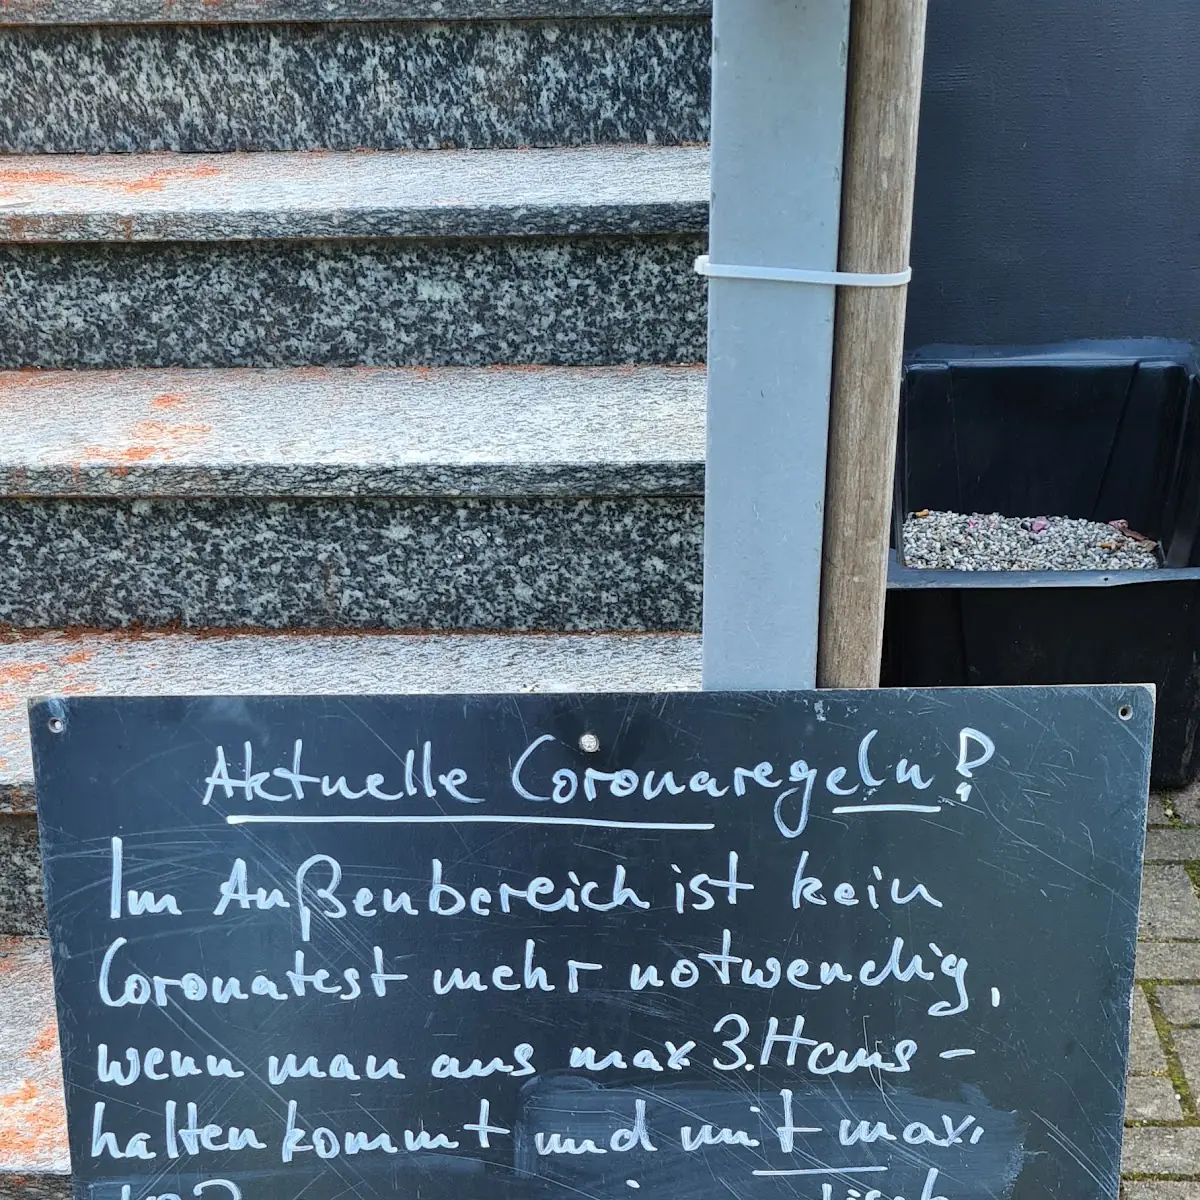 Aktuelle Coronaregeln?
Im Außenbereich ist kein
Coronatest mehr notwendig,
wenn man aus max 3.Haus-
halten kommt und mit max.